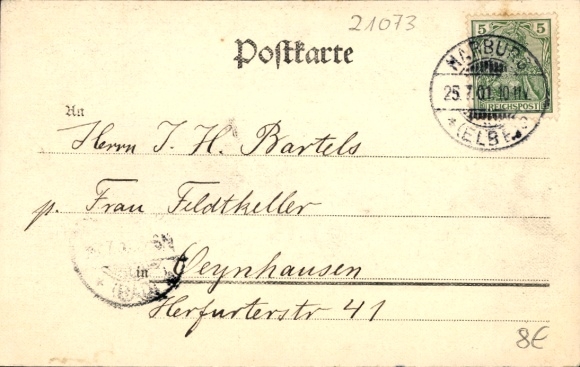 21073
Postkarte
5 5
REICHSPOST
HARBURG
25.7.01. 10
(ELBE)
An
Herrn J. H. Bartels
p. Frau Feldtkeller
in Oeynhausen
(BAD)
Herfurterstr 41
8€